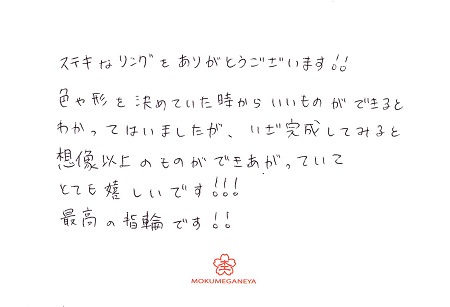 ステキなリングをありがとうございます!!
色や形を決めていた時からいいものができると
わかってはいましたが、いざ完成してみると
想像以上のものができあがっていて
とても嬉しいです!!!
最高の指輪です!!
杢
MOKUMEGANEYA